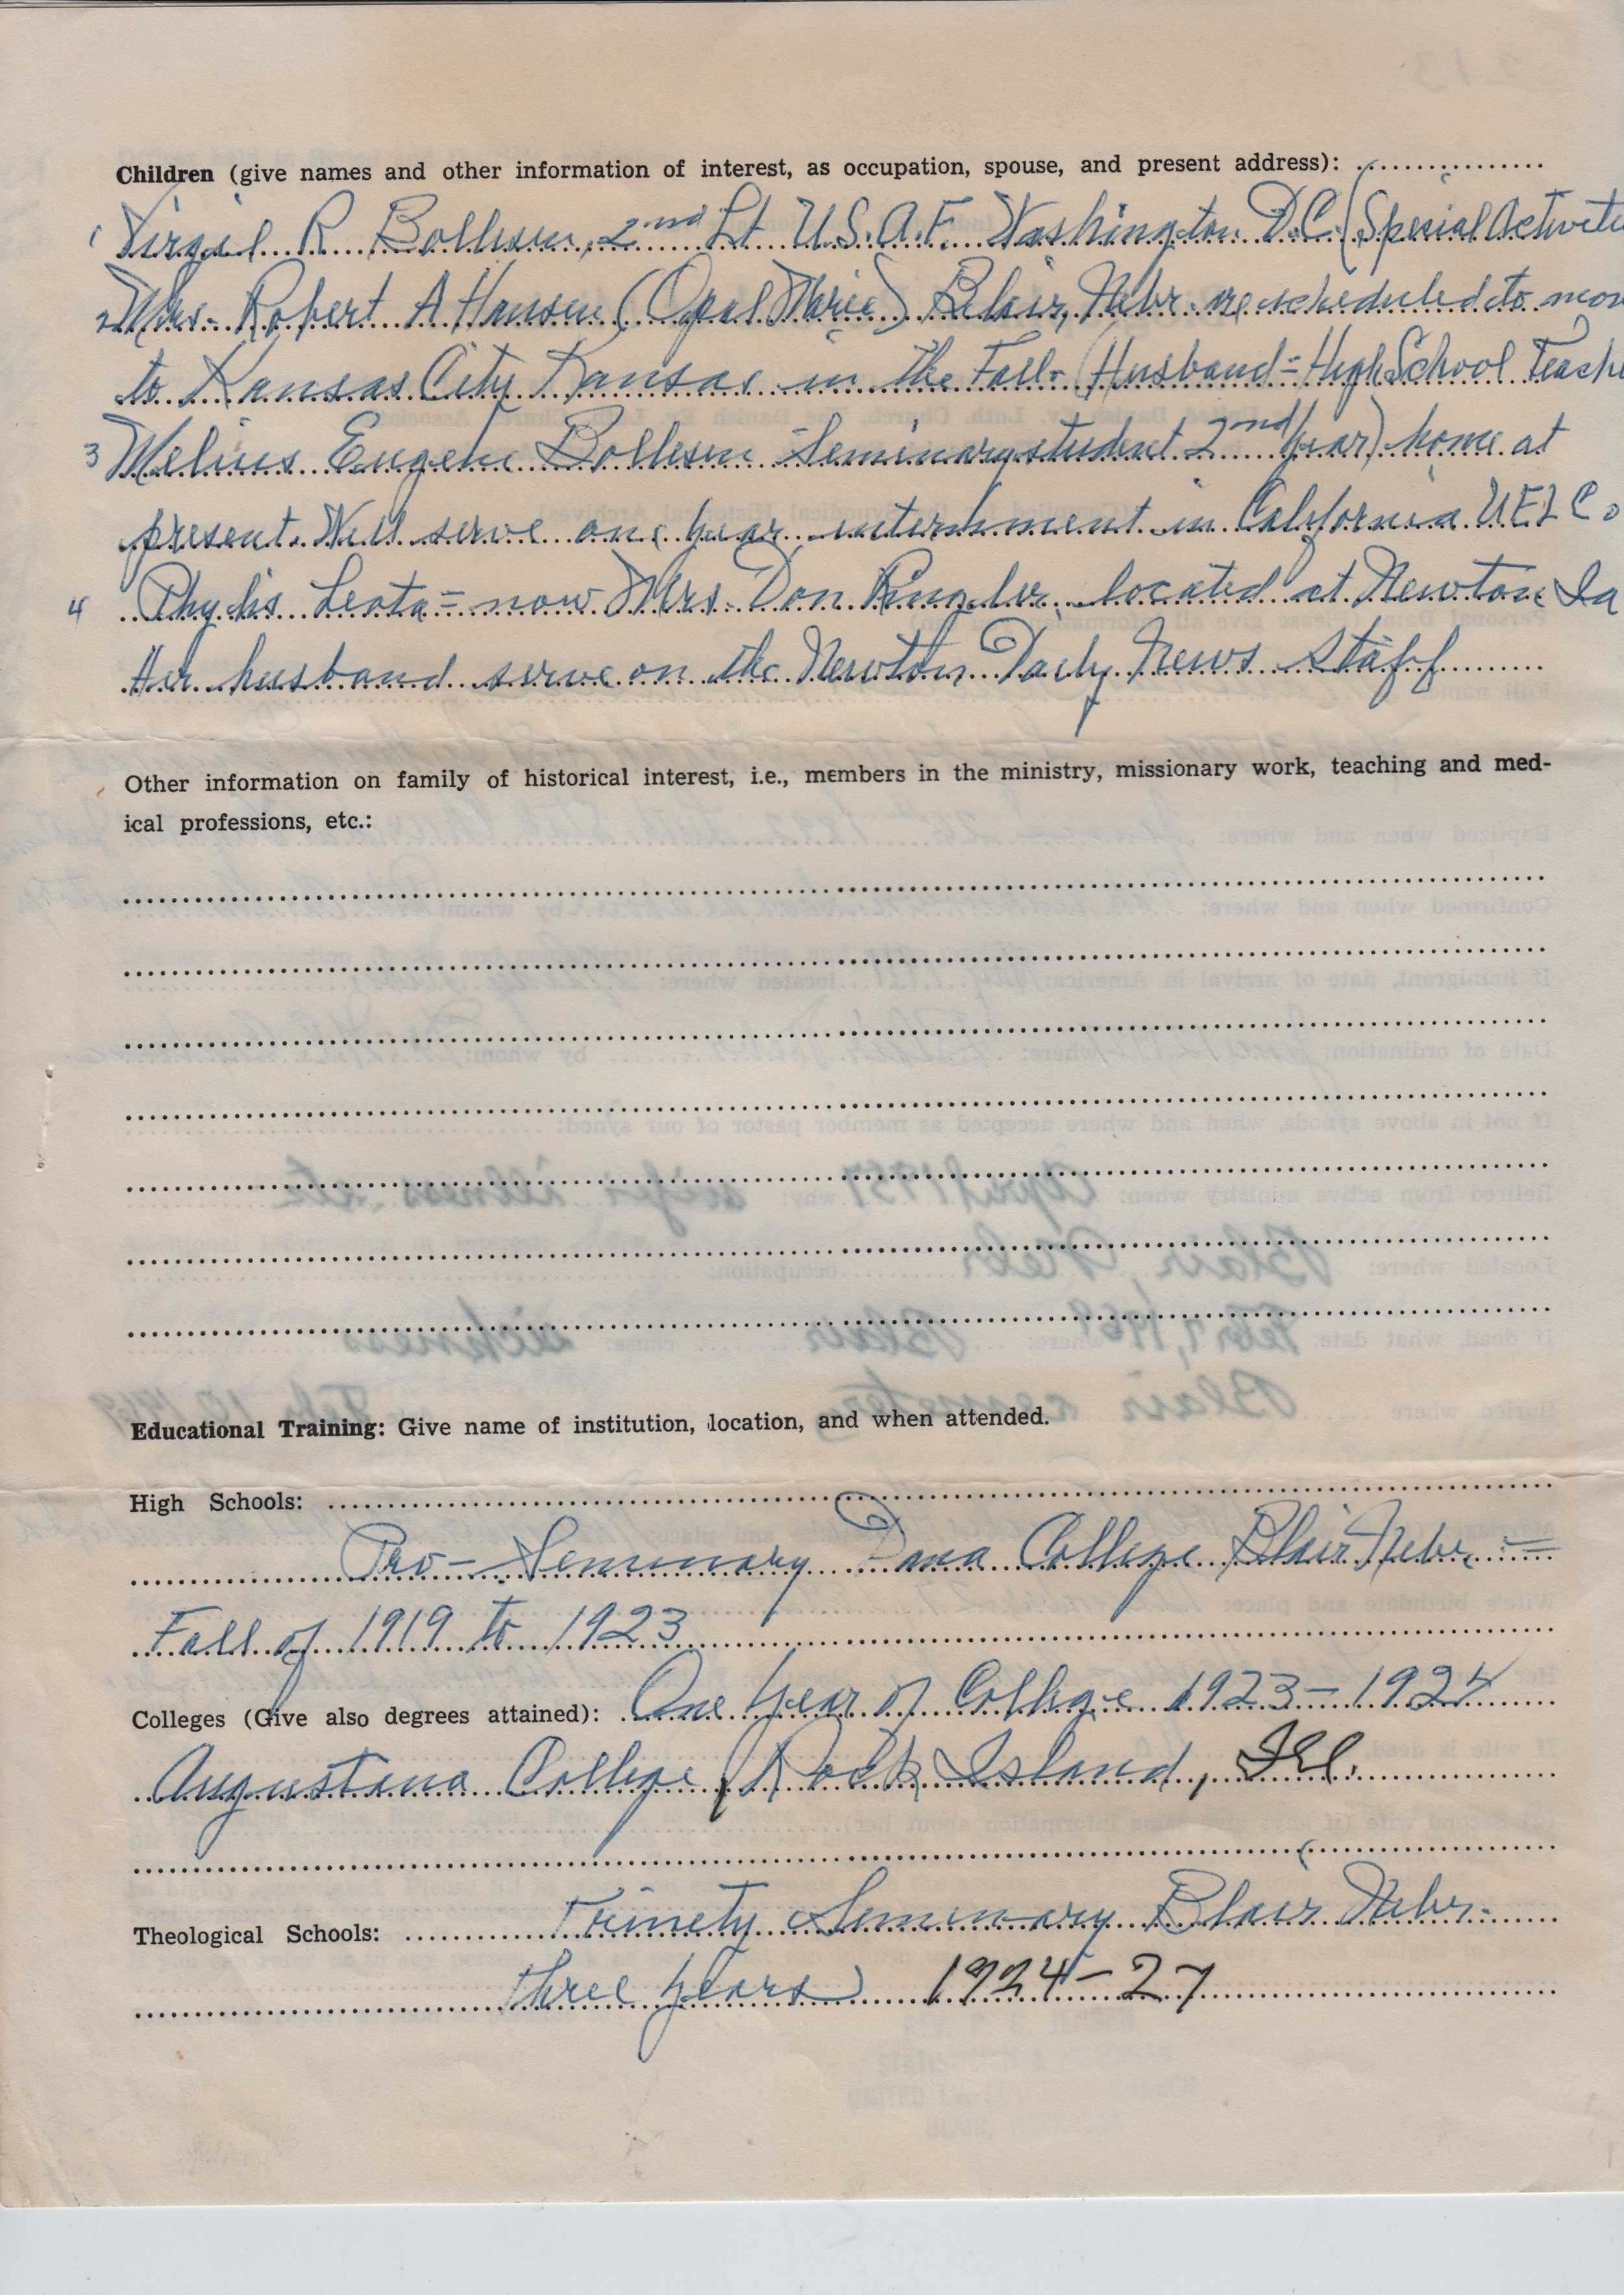 Children (give names and other information of interest, as occupation, spouse, and present address):
1 Virgil R Bollesen, 2nd Lt U.S.A.F. Washington D.C. (Special Activitie
2 Mrs. Robert A Hansen (Opal Marie) Blair, Nebr. are scheduled to mov
to Kansas City Kansas in the Fall. (Husband = High School Teache
3 Melius Eugene Bollesen Seminary student 2nd year) home at
present. Will serve one year internment in California UELC.
4 Phylis Leota = now Mrs. Don Ringler located at Newton Ia
Her husband serve on the Newton Daily News Staff
Other information on family of historical interest, i.e., members in the ministry, missionary work, teaching and med-
ical professions, etc.:
Educational Training: Give name of institution, location, and when attended.
High Schools:
Pro-Seminary Dana College Blair Nebr. =
Fall of 1919 to 1923
Colleges (Give also degrees attained): One year of College 1923-1924
Augustana College, Rock Island, Ill.
Theological Schools: Trinety Seminary Blair Nebr.
three years) 1924-27